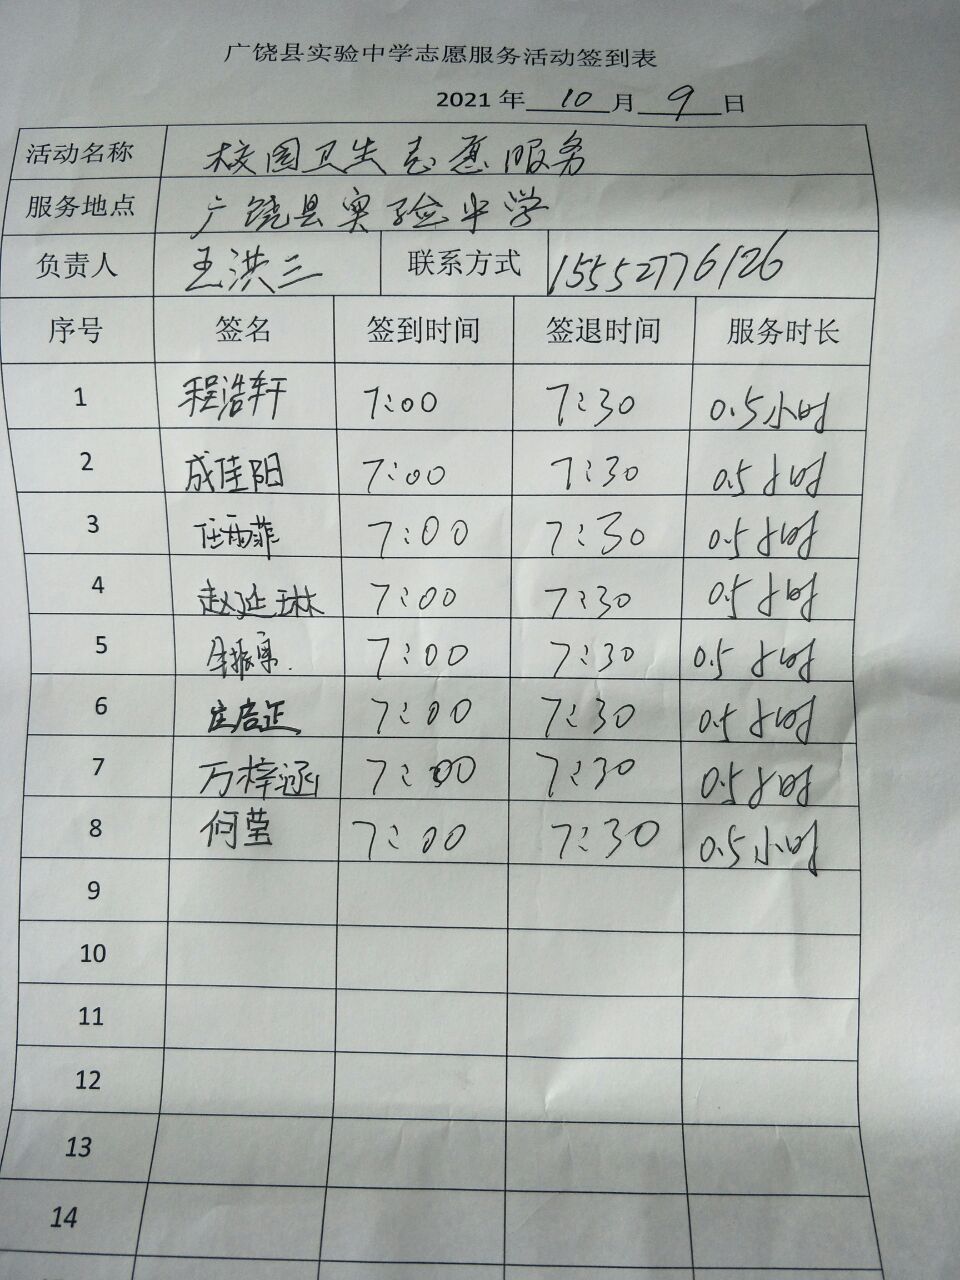 广饶县实验中学志愿服务活动签到表
2021 年 10 月 9 日
活动名称 校园卫生志愿服务
服务地点 广饶县实验中学
负责人 王洪三 联系方式 15552776126
序号 签名 签到时间 签退时间 服务时长
1 程浩轩 7:00 7:30 0.5小时
2 成佳阳 7:00 7:30 0.5小时
3 任雨菲 7:00 7:30 0.5小时
4 赵延琳 7:00 7:30 0.5小时
5 7:00 7:30 0.5小时
6 7:00 7:30 0.5小时
7 万梓涵 7:00 7:30 0.5小时
8 何莹 7:00 7:30 0.5小时
9
10
11
12
13
14